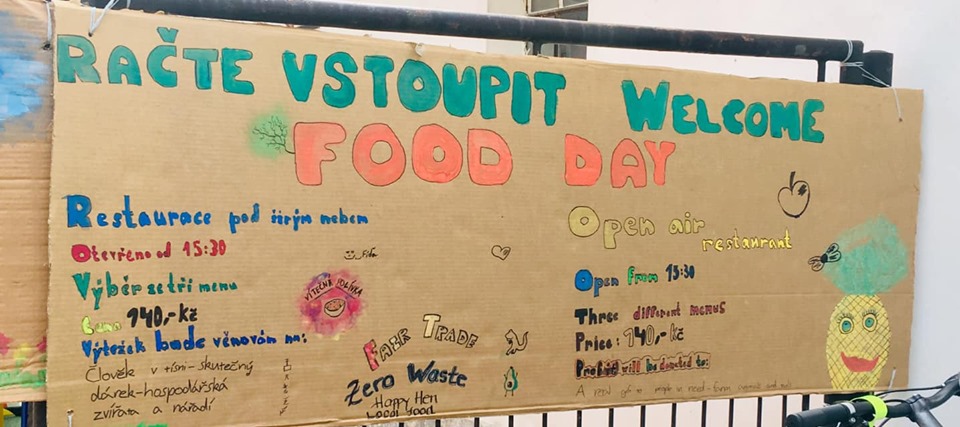 RAČTE VSTOUPIT WELCOME
FOOD DAY
Restaurace pod širým nebem
Otevřeno od 15:30
Výběr ze tří menu
Cena 140,-Kč
Výtěžek bude věnován na:
Člověk v tísni - skutečný
dárek - hospodářská
zvířata a nářadí
VÍTEČNÁ POLÍVKA
FAER TRADE
Zero Waste
Happy Hen
Local food
Open air
restaurant
Open from 15:30
Three different menus
Price: 140,-Kč
will be donated to:
A real gift to people in need - farm animals and